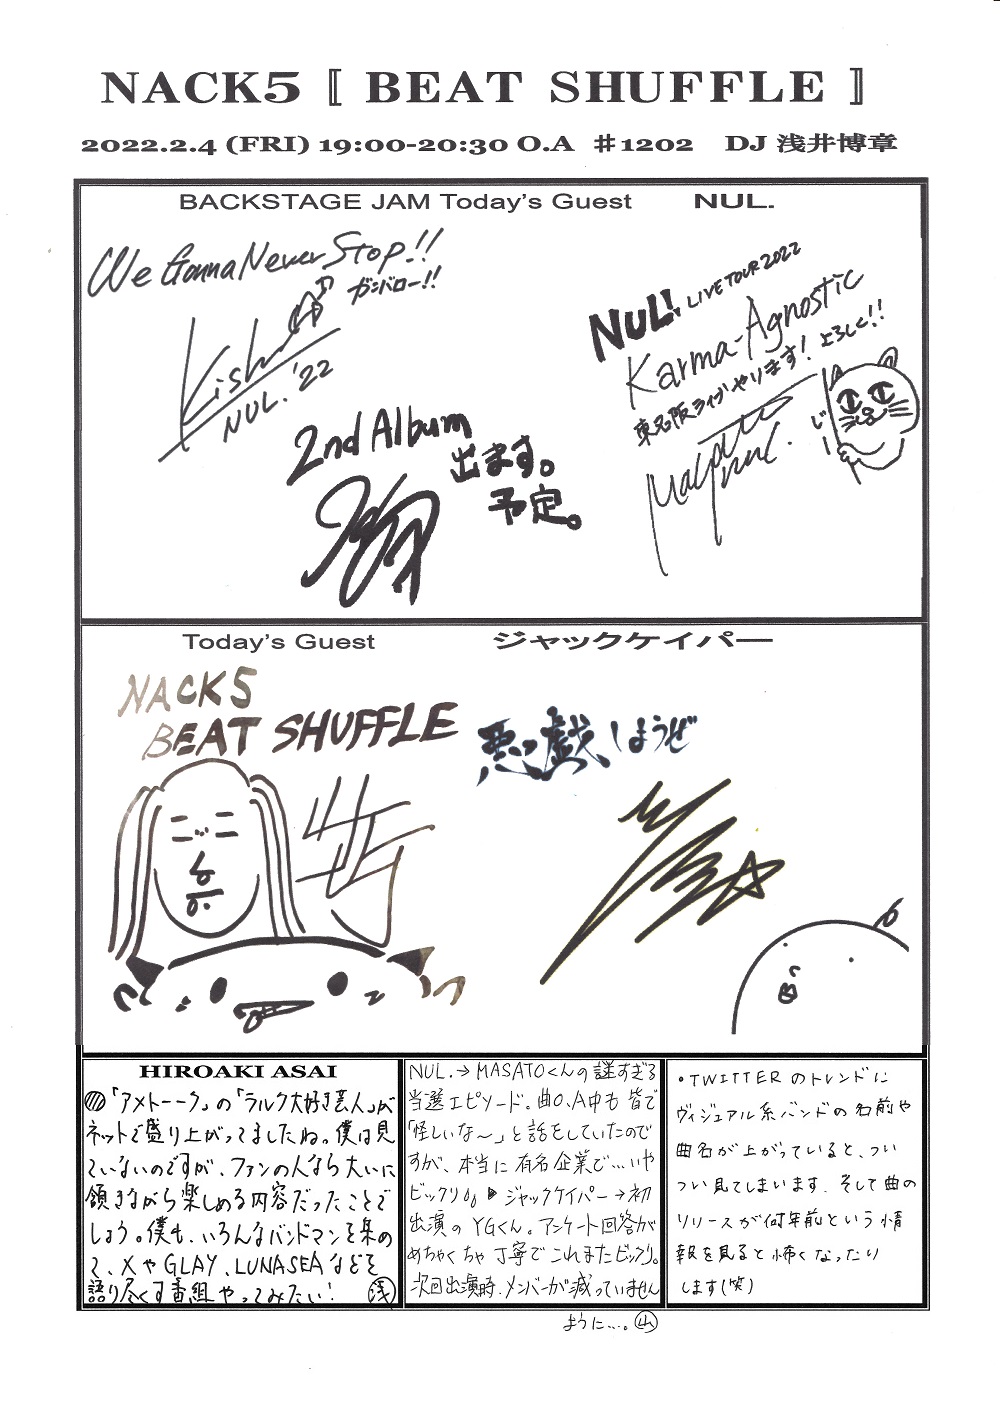 NACK5 〚 BEAT SHUFFLE 〛
2022.2.4 (FRI) 19:00-20:30 O.A ＃1202 DJ 浅井博章
BACKSTAGE JAM Today's Guest NUL.
We Gonna Never Stop!!
ガンバロー!!
Kishi
NUL. '22
2nd Album
出ます。
予定。
NUL. LIVE TOUR 2022
Karma-Agnostic
東名阪ライブやります! よろしく!!
じー
Masato
NUL.
Today's Guest ジャックケイパー
NACK5
BEAT SHUFFLE
悪戯しようぜ
HIROAKI ASAI
「アメトーーク」の「ラルク大好き芸人」が
ネットで盛り上がってましたね。僕は見
ていないのですが、ファンの人なら大いに
頷きながら楽しめる内容だったことで
しょう。僕も、いろんなバンドマンを集め
て、XやGLAY、LUNASEAなどを
語り尽くす番組やってみたい! 浅
NUL.→MASATOくんの謎すぎる
当選エピソード。曲O.A中も皆で
「怪しいな〜」と話をしていたので
すが、本当に有名企業で…いや
ビックリ。。▶ジャックケイパー→初
出演のYGくん。アンケート回答が
めちゃくちゃ丁寧でこれまたビックリ。
次回出演時、メンバーが減っていません
ように…。山
・TWITTERのトレンドに
ヴィジュアル系バンドの名前や
曲名が上がっていると、つい
つい見てしまいます。そして曲の
リリースが何年前という情
報を見ると怖くなったり
します(笑)